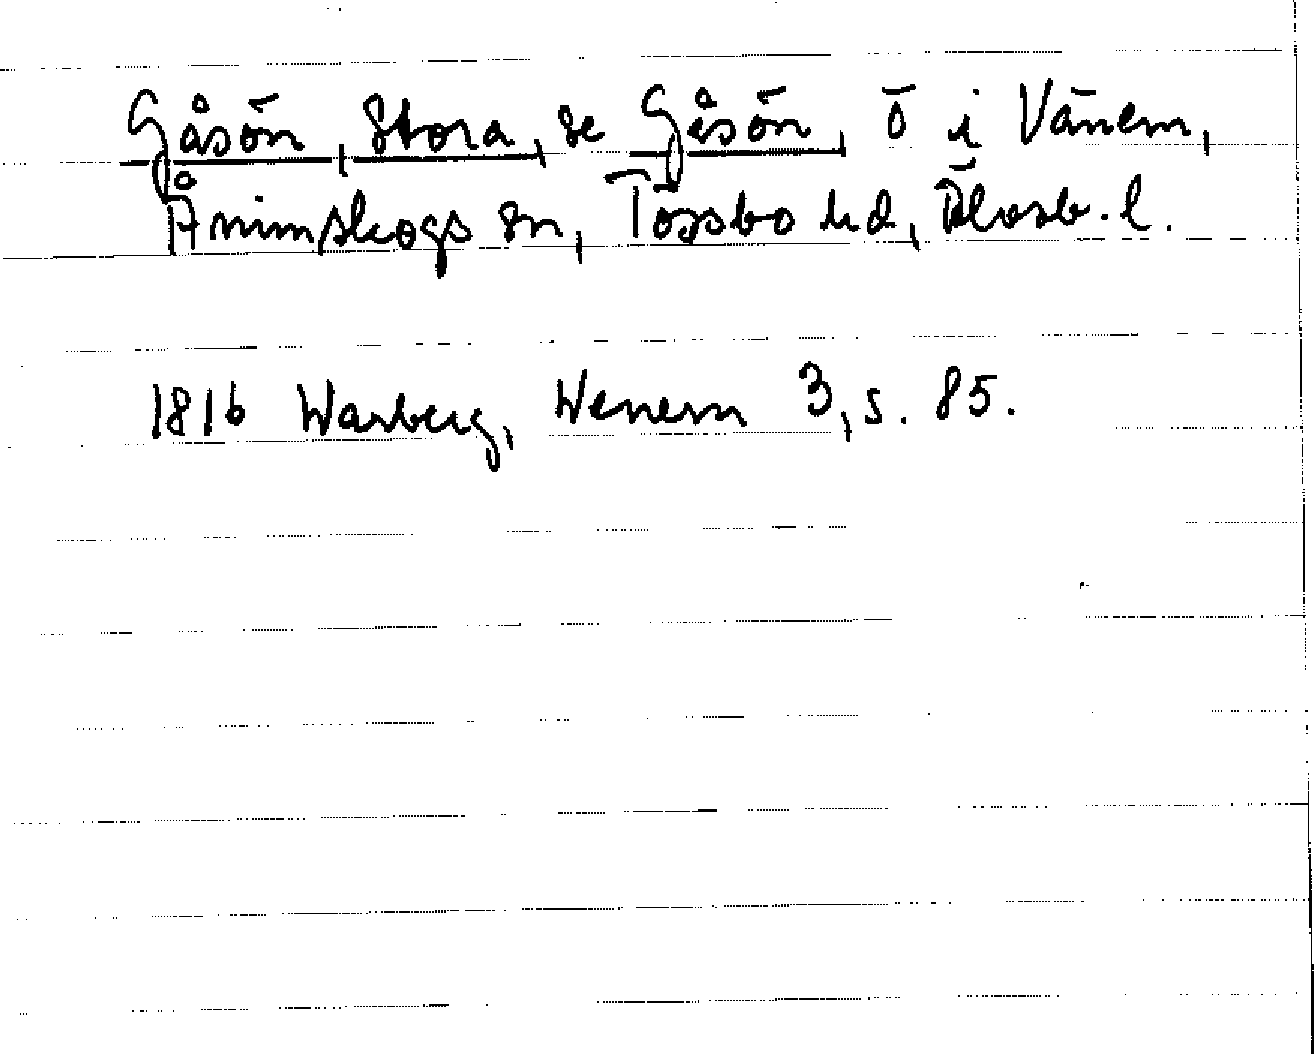 Gåsön, Stora, se Gåsön, ö i Vänern,
Ånimskogs sn, Tössbo hd, Älvsb. l.
1816 Warberg, Wenern 3, s. 85.